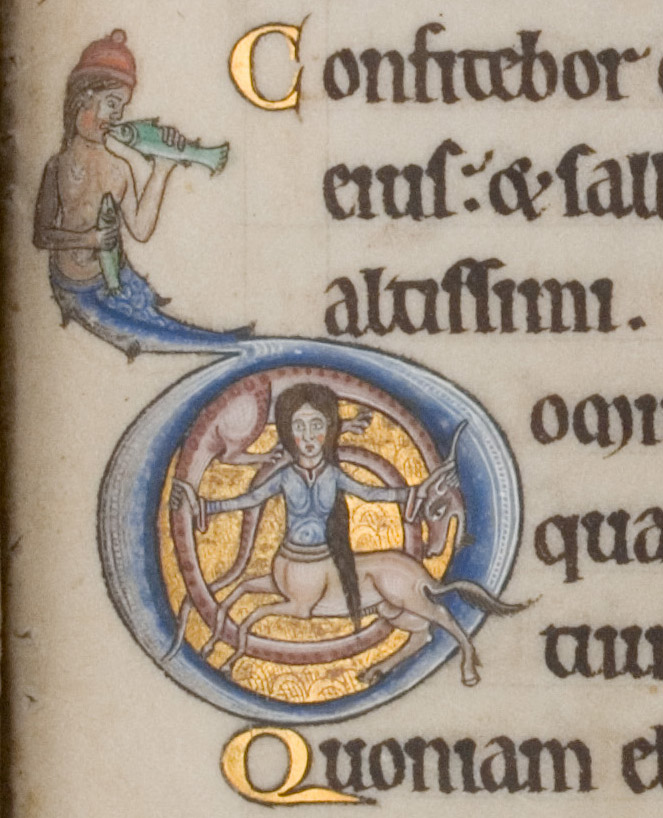 Confitebor
eius: & sal
altissimi.
Domi
qua
tiu
Quoniam el